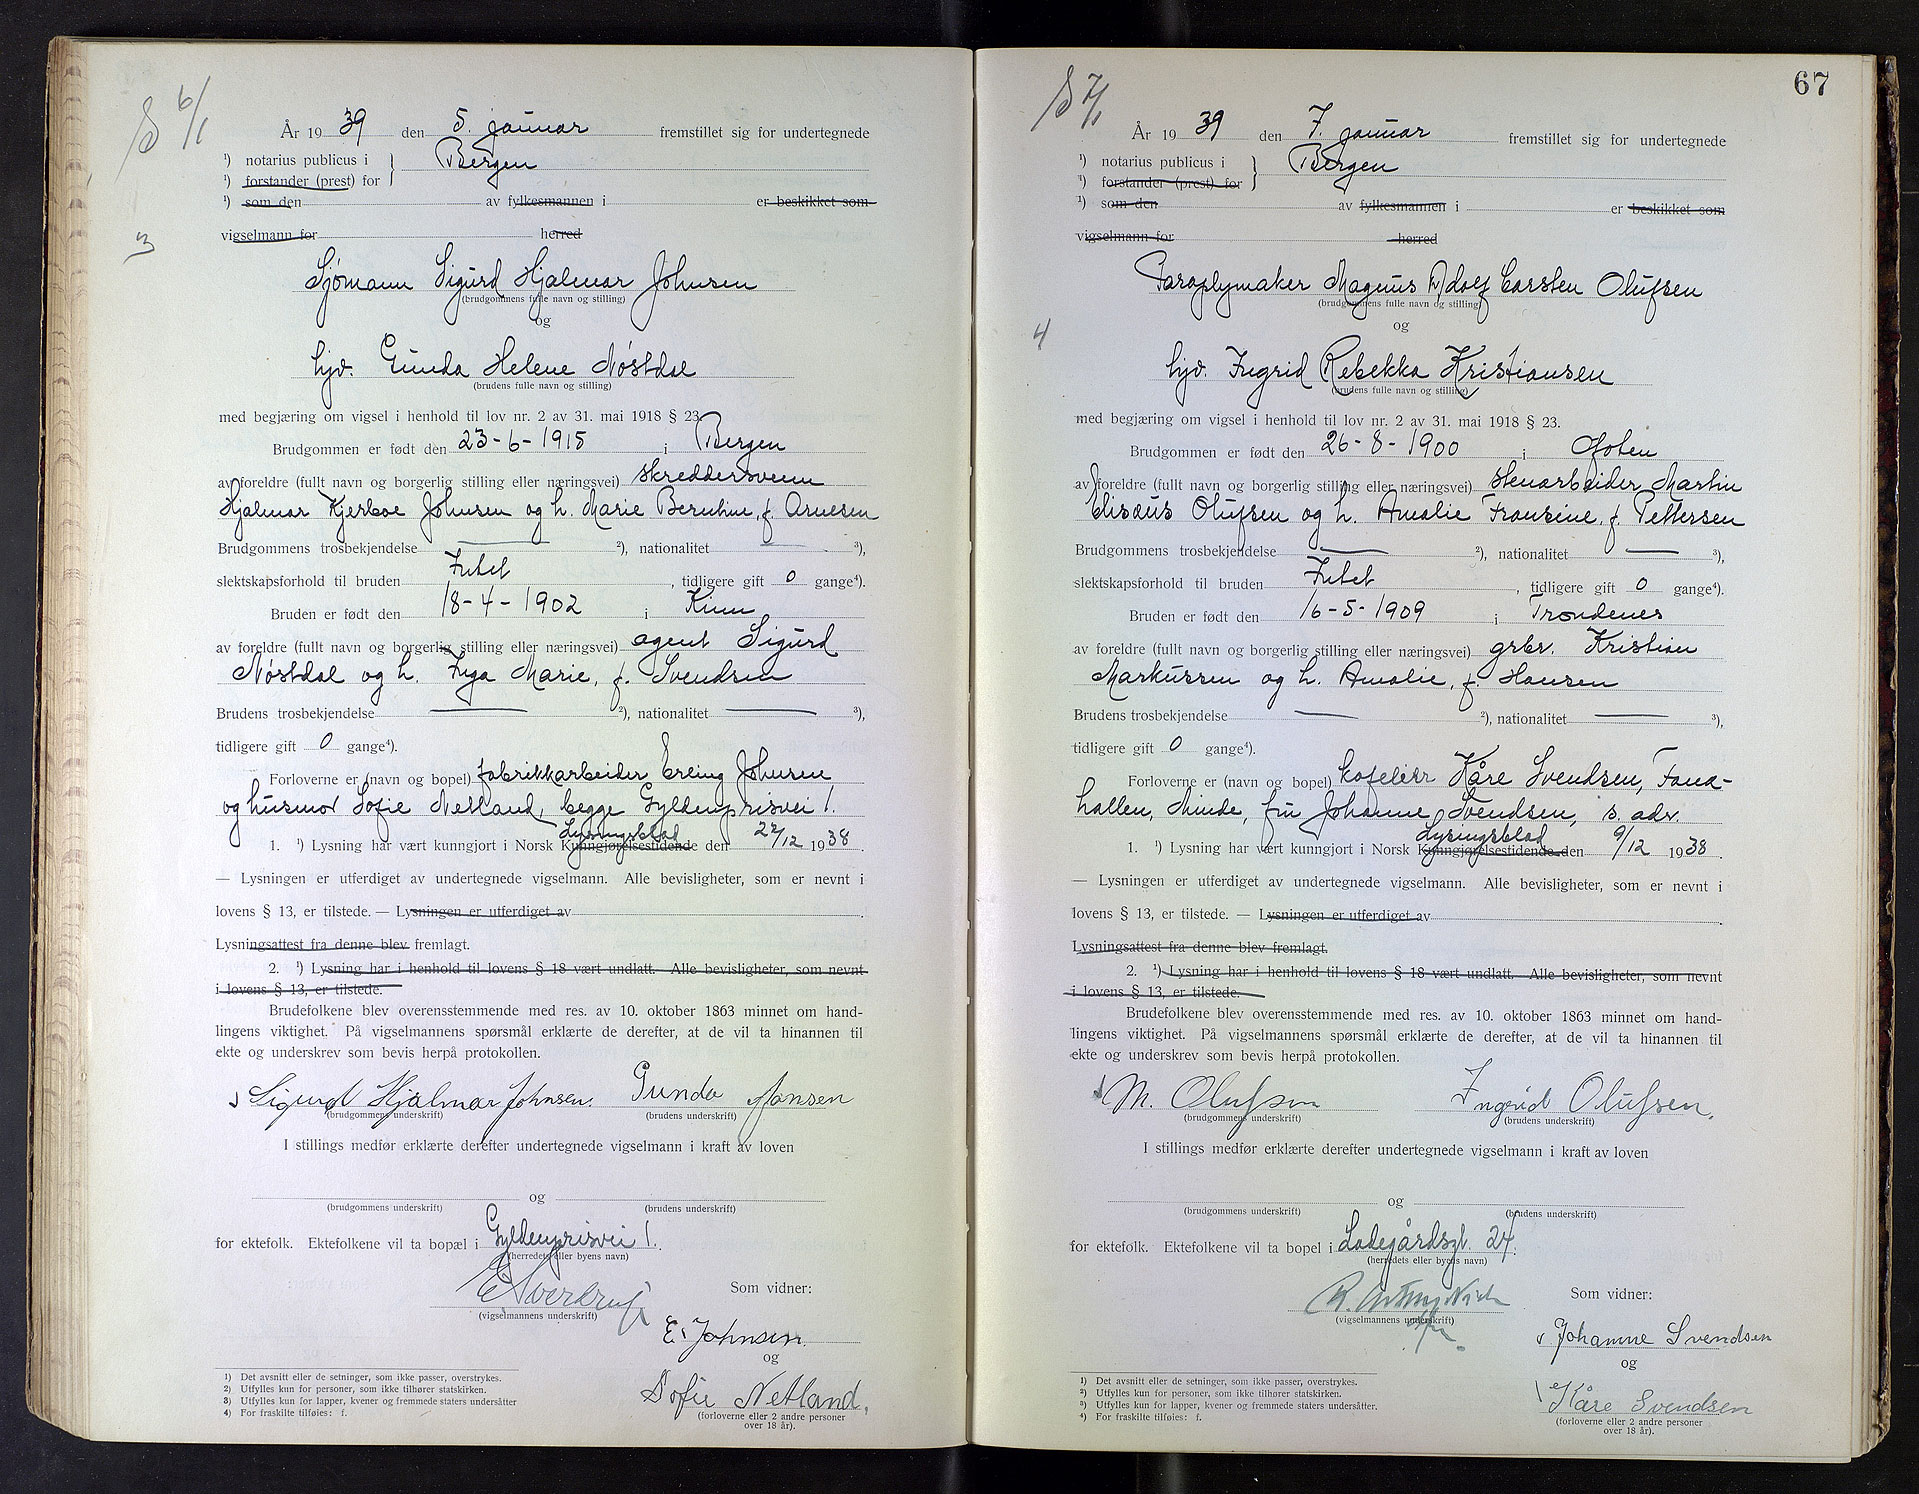 S 6/1
År 19 39 den 5. januar fremstillet sig for undertegnede
¹) notarius publicus i } Bergen
¹) forstander (prest) for
¹) som den av fylkesmannen i er beskikket som
vigselmann for herred
3
Sjömann Sigurd Hjalmar Johnsen
(brudgommens fulle navn og stilling)
og
hjv. Gunda Helene Nøstdal
(brudens fulle navn og stilling)
med begjæring om vigsel i henhold til lov nr. 2 av 31. mai 1918 § 23.
Brudgommen er født den 23-6-1915 i Bergen
av foreldre (fullt navn og borgerlig stilling eller næringsvei) skreddersvenn
Hjalmar Kjerboe Johnsen og h. Marie Bernthine, f. Arnesen
Brudgommens trosbekjendelse — ²), nationalitet — ³),
slektskapsforhold til bruden Intet, tidligere gift 0 gange⁴).
Bruden er født den 18-4-1902 i Kinn
av foreldre (fullt navn og borgerlig stilling eller næringsvei) agent Sigurd
Nøstdal og h. Inga Marie, f. Svendsen
Brudens trosbekjendelse — ²), nationalitet — ³),
tidligere gift 0 gange⁴).
Forloverne er (navn og bopel) fabrikkarbeider Erling Johnsen
og husmor Sofie Netland, begge Gyldenprisvei 1.
Lysningsblad
1. ¹) Lysning har vært kunngjort i Norsk Kunngjørelsestidende den 22/12 1938.
— Lysningen er utferdiget av undertegnede vigselmann. Alle bevisligheter, som er nevnt i
lovens § 13, er tilstede. — Lysningen er utferdiget av
Lysningsattest fra denne blev fremlagt.
2. ¹) Lysning har i henhold til lovens § 18 vært undlatt. Alle bevisligheter, som nevnt
i lovens § 13, er tilstede.
Brudefolkene blev overensstemmende med res. av 10. oktober 1863 minnet om hand-
lingens viktighet. På vigselmannens spørsmål erklærte de derefter, at de vil ta hinannen til
ekte og underskrev som bevis herpå protokollen.
Sigurd Hjalmar Johnsen. Gunda Jansen
(brudgommens underskrift) (brudens underskrift)
I stillings medfør erklærte derefter undertegnede vigselmann i kraft av loven
og
(brudgommens underskrift) (brudens underskrift)
for ektefolk. Ektefolkene vil ta bopæl i Gyldenprisvei 1.
(herredets eller byens navn)
E. Sverdrup Som vidner:
(vigselmannens underskrift)
E. Johnsen
og
Sofie Netland.
(forloverne eller 2 andre personer
over 18 år).
1) Det avsnitt eller de setninger, som ikke passer, overstrykes.
2) Utfylles kun for personer, som ikke tilhører statskirken.
3) Utfylles kun for lapper, kvener og fremmede staters undersåtter
4) For fraskilte tilføies: f.
67
S 7/1
År 19 39 den 7. januar fremstillet sig for undertegnede
¹) notarius publicus i } Bergen
¹) forstander (prest) for
¹) som den av fylkesmannen i er beskikket som
vigselmann for herred
Paraplymaker Magnus Adolf Carsten Olufsen
(brudgommens fulle navn og stilling)
og
4
hjv. Ingrid Rebekka Kristiansen
(brudens fulle navn og stilling)
med begjæring om vigsel i henhold til lov nr. 2 av 31. mai 1918 § 23.
Brudgommen er født den 26-8-1900 i Ofoten
av foreldre (fullt navn og borgerlig stilling eller næringsvei) stenarbeider Martin
Elisæus Olufsen og h. Amalie Fransine, f. Pettersen
Brudgommens trosbekjendelse — ²), nationalitet — ³),
slektskapsforhold til bruden Intet, tidligere gift 0 gange⁴).
Bruden er født den 16-5-1909 i Trondenes
av foreldre (fullt navn og borgerlig stilling eller næringsvei) grbr. Kristian
Markussen og h. Amalie, f. Hansen
Brudens trosbekjendelse — ²), nationalitet — ³),
tidligere gift 0 gange⁴).
Forloverne er (navn og bopel) kafeleier Kåre Svendsen, Fana-
hallen, Minde, fru Johanne Svendsen, s. adr.
Lysningsblad
1. ¹) Lysning har vært kunngjort i Norsk Kunngjørelsestidende den 9/12 1938.
— Lysningen er utferdiget av undertegnede vigselmann. Alle bevisligheter, som er nevnt i
lovens § 13, er tilstede. — Lysningen er utferdiget av
Lysningsattest fra denne blev fremlagt.
2. ¹) Lysning har i henhold til lovens § 18 vært undlatt. Alle bevisligheter, som nevnt
i lovens § 13, er tilstede.
Brudefolkene blev overensstemmende med res. av 10. oktober 1863 minnet om hand-
lingens viktighet. På vigselmannens spørsmål erklærte de derefter, at de vil ta hinannen til
ekte og underskrev som bevis herpå protokollen.
M. Olufsen Ingrid Olufsen.
(brudgommens underskrift) (brudens underskrift)
I stillings medfør erklærte derefter undertegnede vigselmann i kraft av loven
og
(brudgommens underskrift) (brudens underskrift)
for ektefolk. Ektefolkene vil ta bopel i Ladegårdsgt. 24.
(herredets eller byens navn)
R. Som vidner:
(vigselmannens underskrift)
Johanne Svendsen
og
Kåre Svendsen
(forloverne eller 2 andre personer
over 18 år).
1) Det avsnitt eller de setninger, som ikke passer, overstrykes.
2) Utfylles kun for personer, som ikke tilhører statskirken.
3) Utfylles kun for lapper, kvener og fremmede staters undersåtter.
4) For fraskilte tilføies: f.